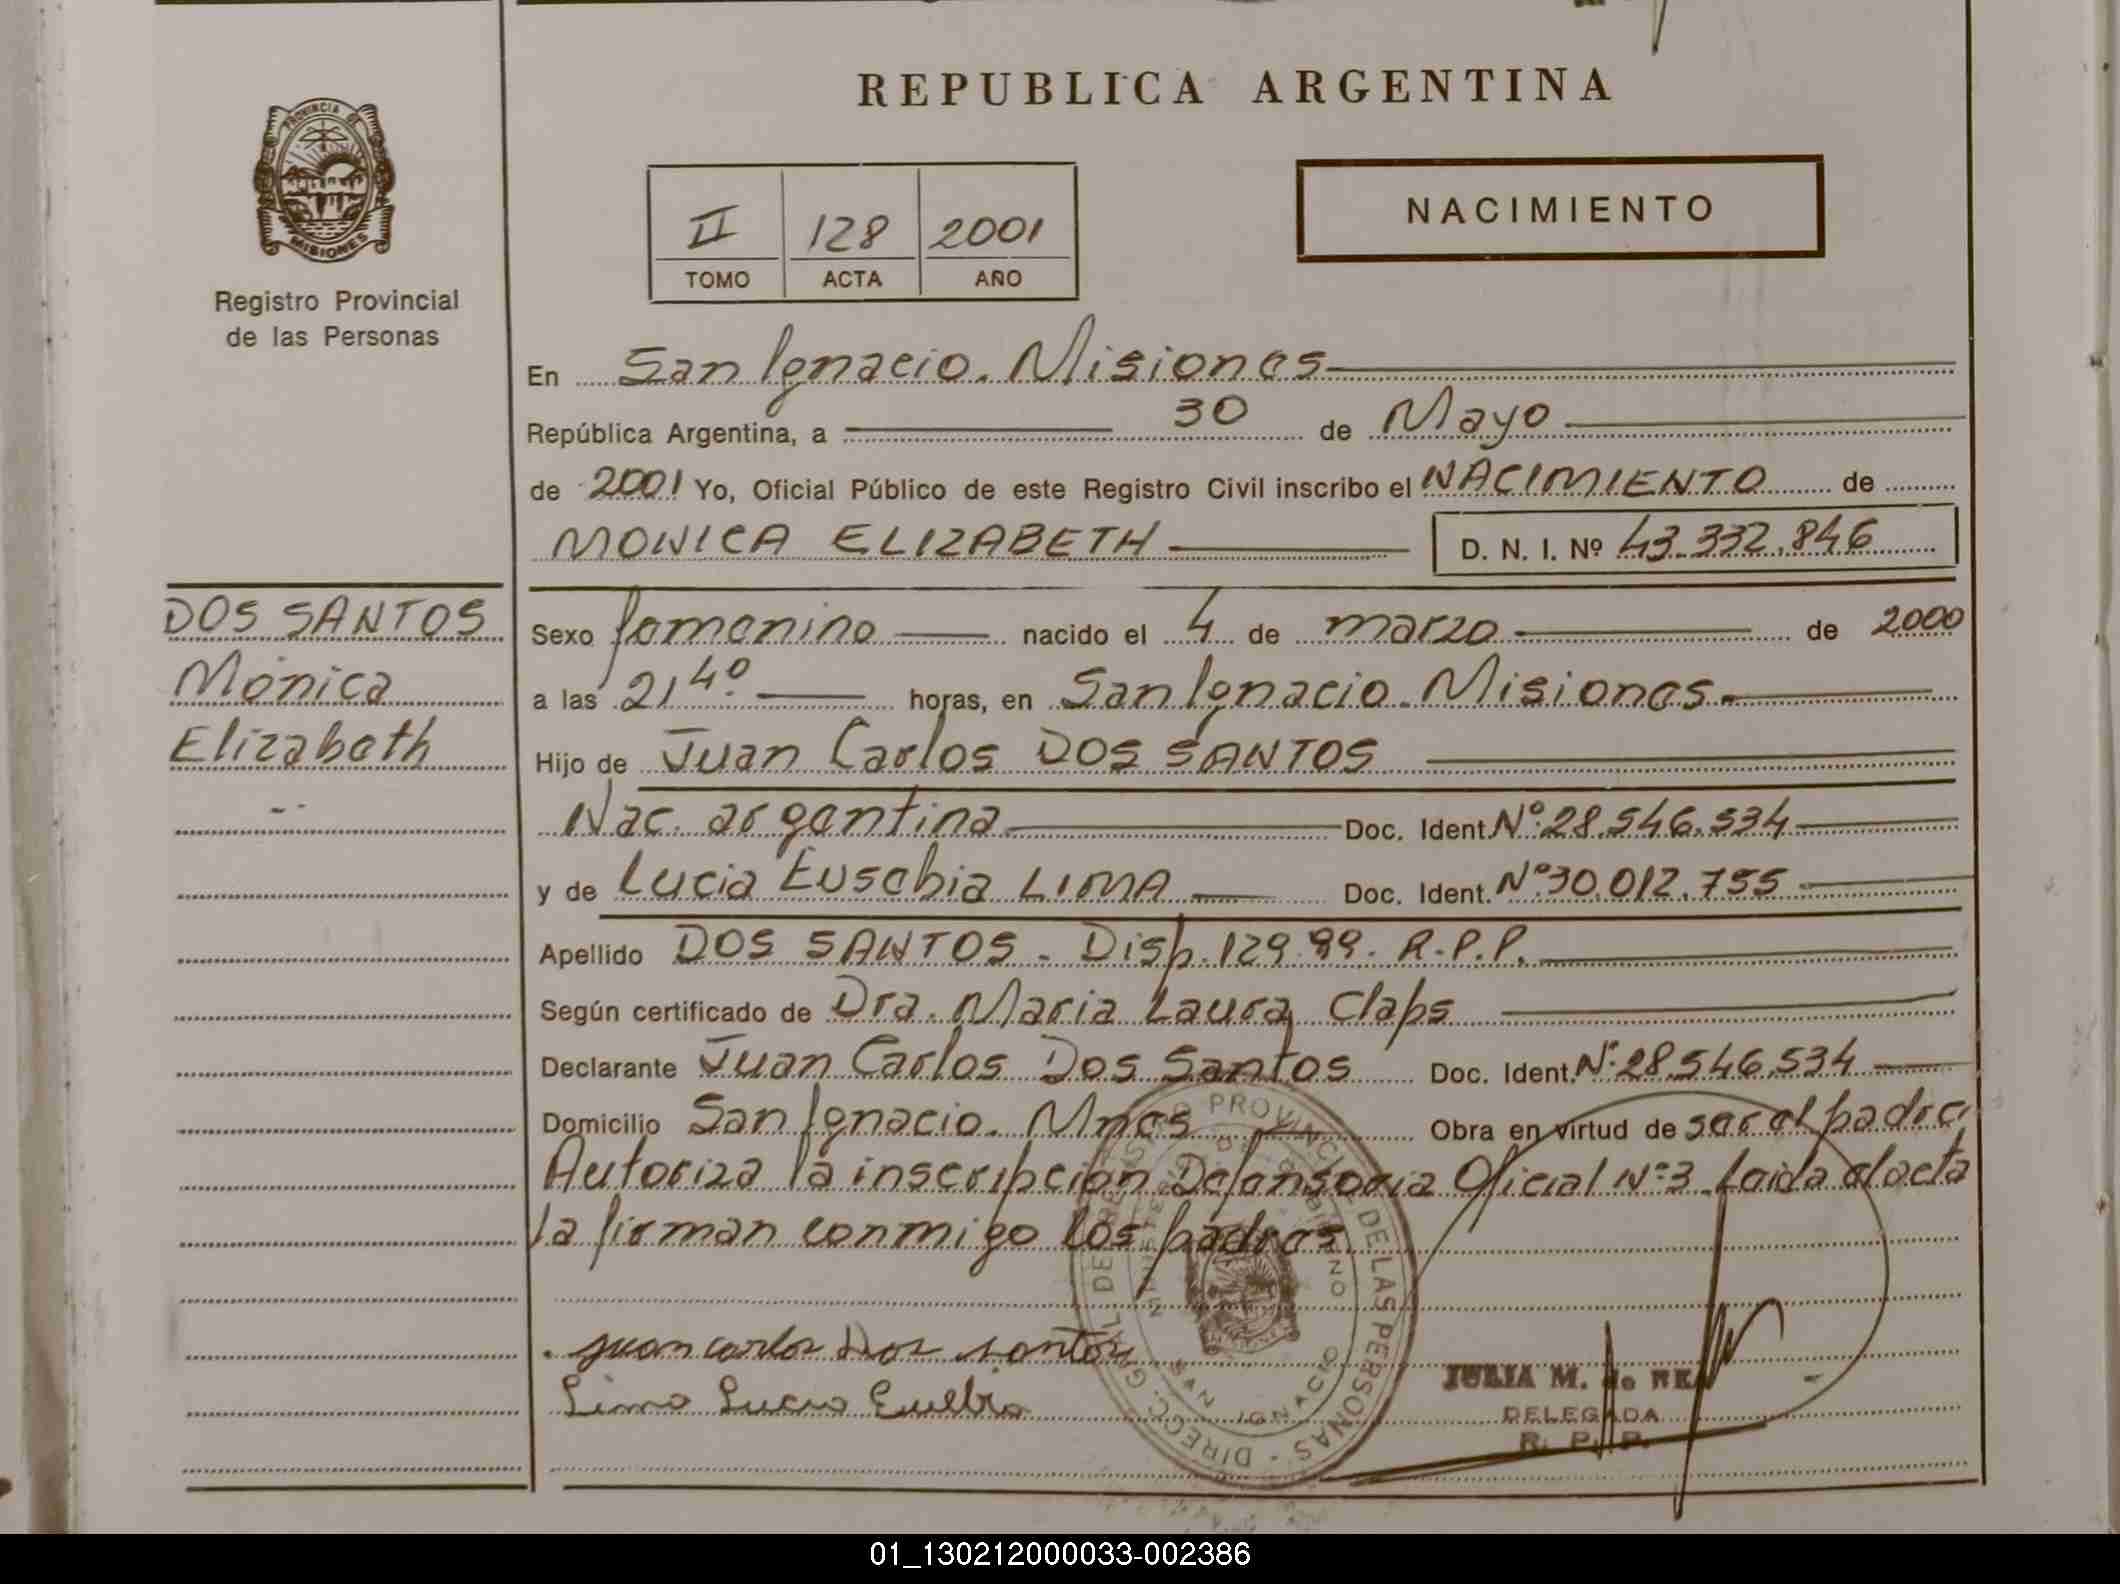 REPUBLICA ARGENTINA
PROVINCIA DE
MISIONES
Registro Provincial
de las Personas
II 128 2001
TOMO ACTA AÑO
NACIMIENTO
En San Ignacio. Misiones
República Argentina, a 30 de Mayo
de 2001 Yo, Oficial Público de este Registro Civil inscribo el NACIMIENTO de
MONICA ELIZABETH D. N. I. Nº 43.332.846
DOS SANTOS
Mónica
Elizabeth
Sexo femenino nacido el 4 de marzo de 2000
a las 21 40 horas, en San Ignacio. Misiones.
Hijo de Juan Carlos DOS SANTOS
Nac. argentina Doc. Ident. Nº 28.546.534
y de Lucia Eusebia LIMA Doc. Ident. Nº 30.012.755
Apellido DOS SANTOS - Disp. 129.99. R.P.P.
Según certificado de Dra. Maria Laura Claps
Declarante Juan Carlos Dos Santos Doc. Ident. Nº 28.546.534
Domicilio San Ignacio. Mnes Obra en virtud de ser el padre
Autoriza la inscripción Defensoria Oficial Nº 3. Leida el acta
la firman conmigo los padres.
juan carlos Dos santos
Lima Lucia
DIRECC. GRAL DE REGISTRO PROVINC. DE LAS PERSONAS
MINISTERIO DE GOBIERNO
SAN IGNACIO
JULIA M. de
DELEGADA
R. P. P.
01_130212000033-002386